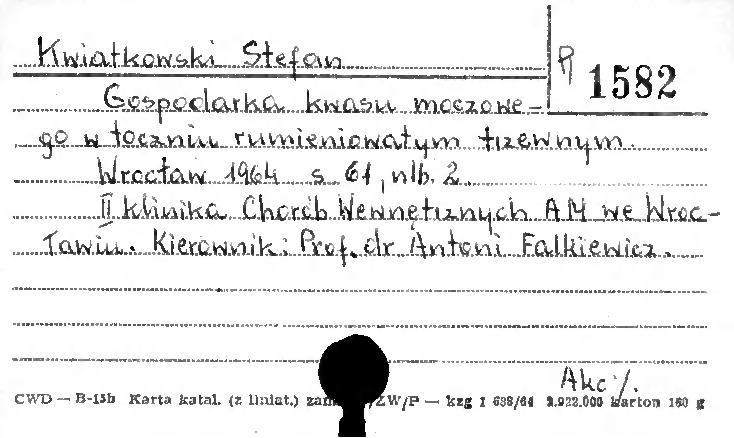 Kwiatkowski Stefan
R 1582
Gospodarka kwasu moczowe-
go w toczniu rumieniowatym trzewnym.
Wrocław 1964 s. 61, nlb. 2.
II Klinika Chorób Wewnętrznych A.M we Wroc-
ławiu. Kierownik: Prof. dr Antoni Falkiewicz.
Akc /.
CWD — B-15b Karta katal. (z liniat.) ZW/P — kzg 1 638/64 3.922.000 karton 160 g